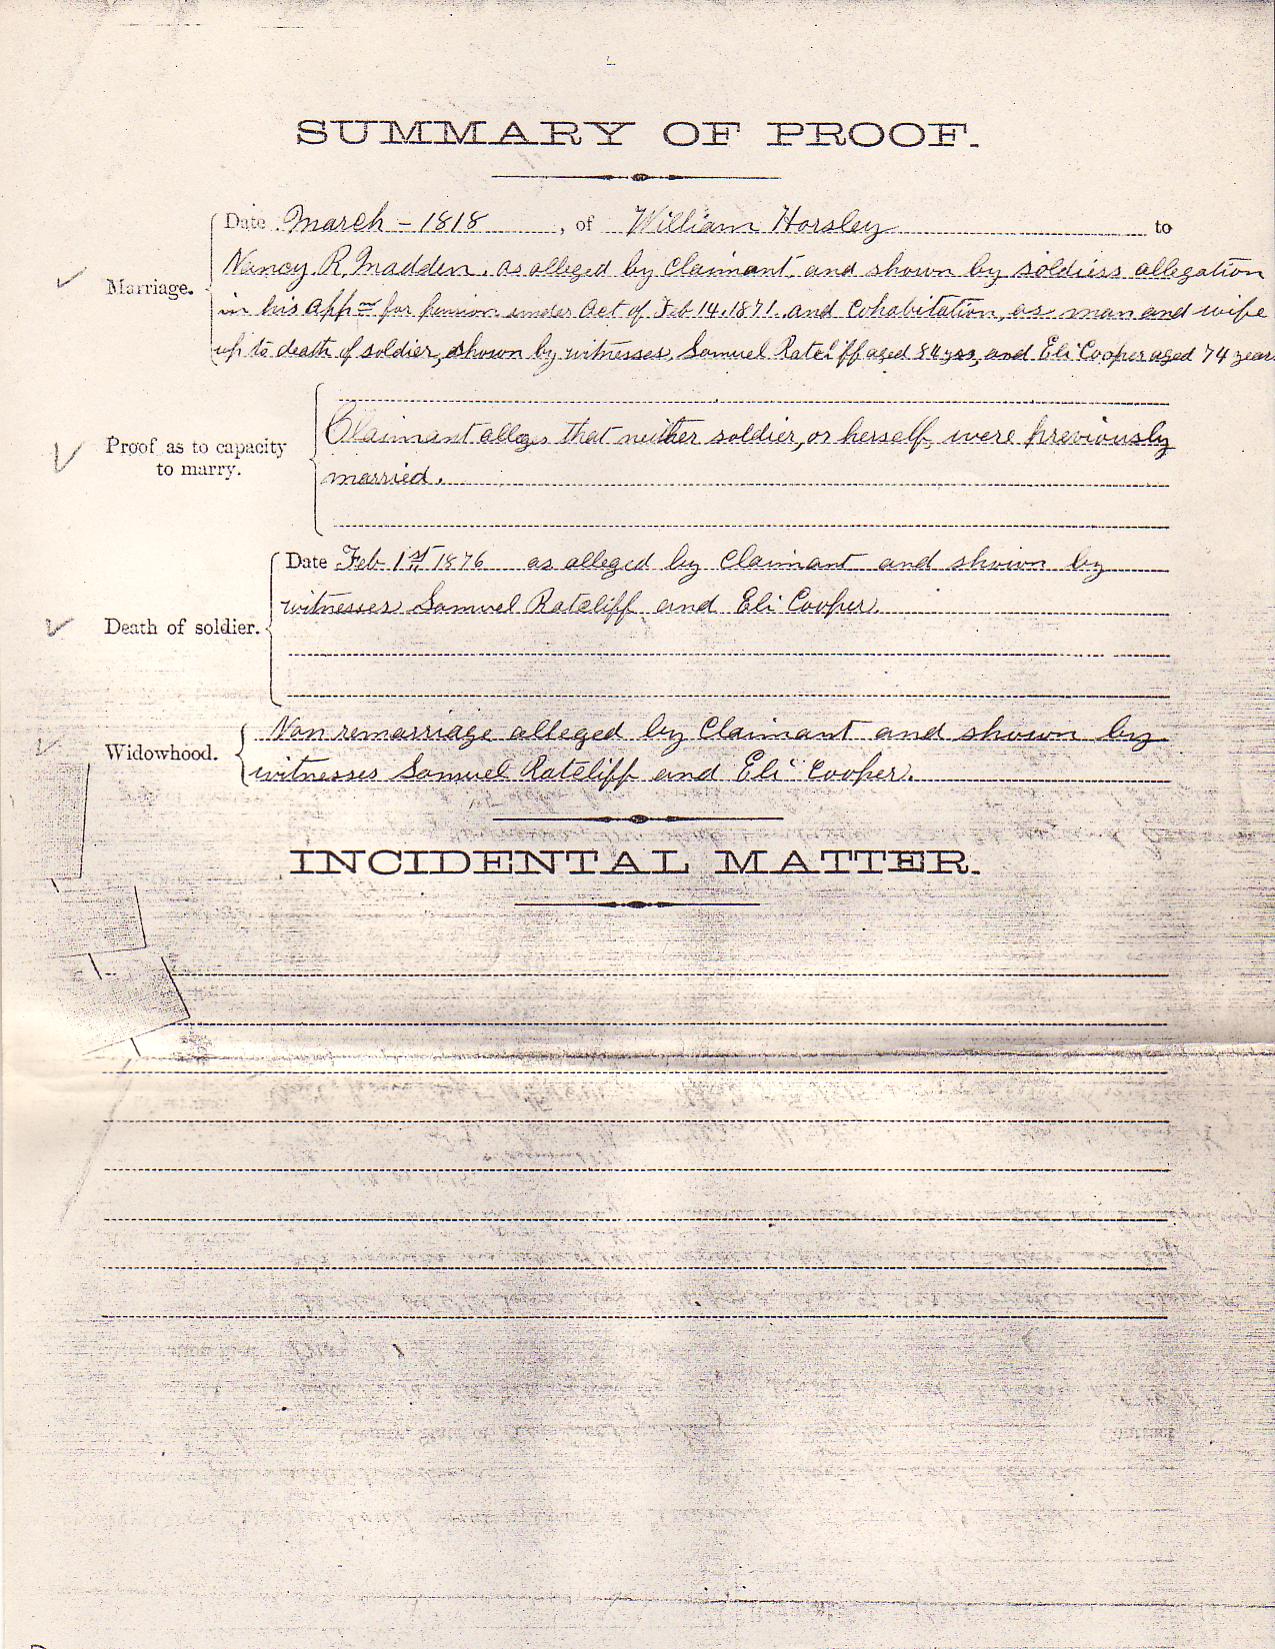 SUMMARY OF PROOF.
Date March - 1818, of William Horsley to
Nancy R. Madden. as alleged by Claimant and shown by soldiers allegation
Marriage.
in his appn for pension under Act of Feb 14. 1871. and Cohabitation, as man and wife
up to death of soldier, shown by witnesses, Samuel Ratcliff aged 84 yrs, and Eli Cooper aged 74 years
Claimant alleges that neither soldier, or herself, were previously
Proof as to capacity
to marry.
married.
Date Feb 1st 1876 as alleged by Claimant and shown by
witnesses Samuel Ratcliff and Eli Cooper.
Death of soldier.
Non remarriage alleged by Claimant and shown by
Widowhood.
witnesses Samuel Ratcliff and Eli Cooper.
INCIDENTAL MATTER.